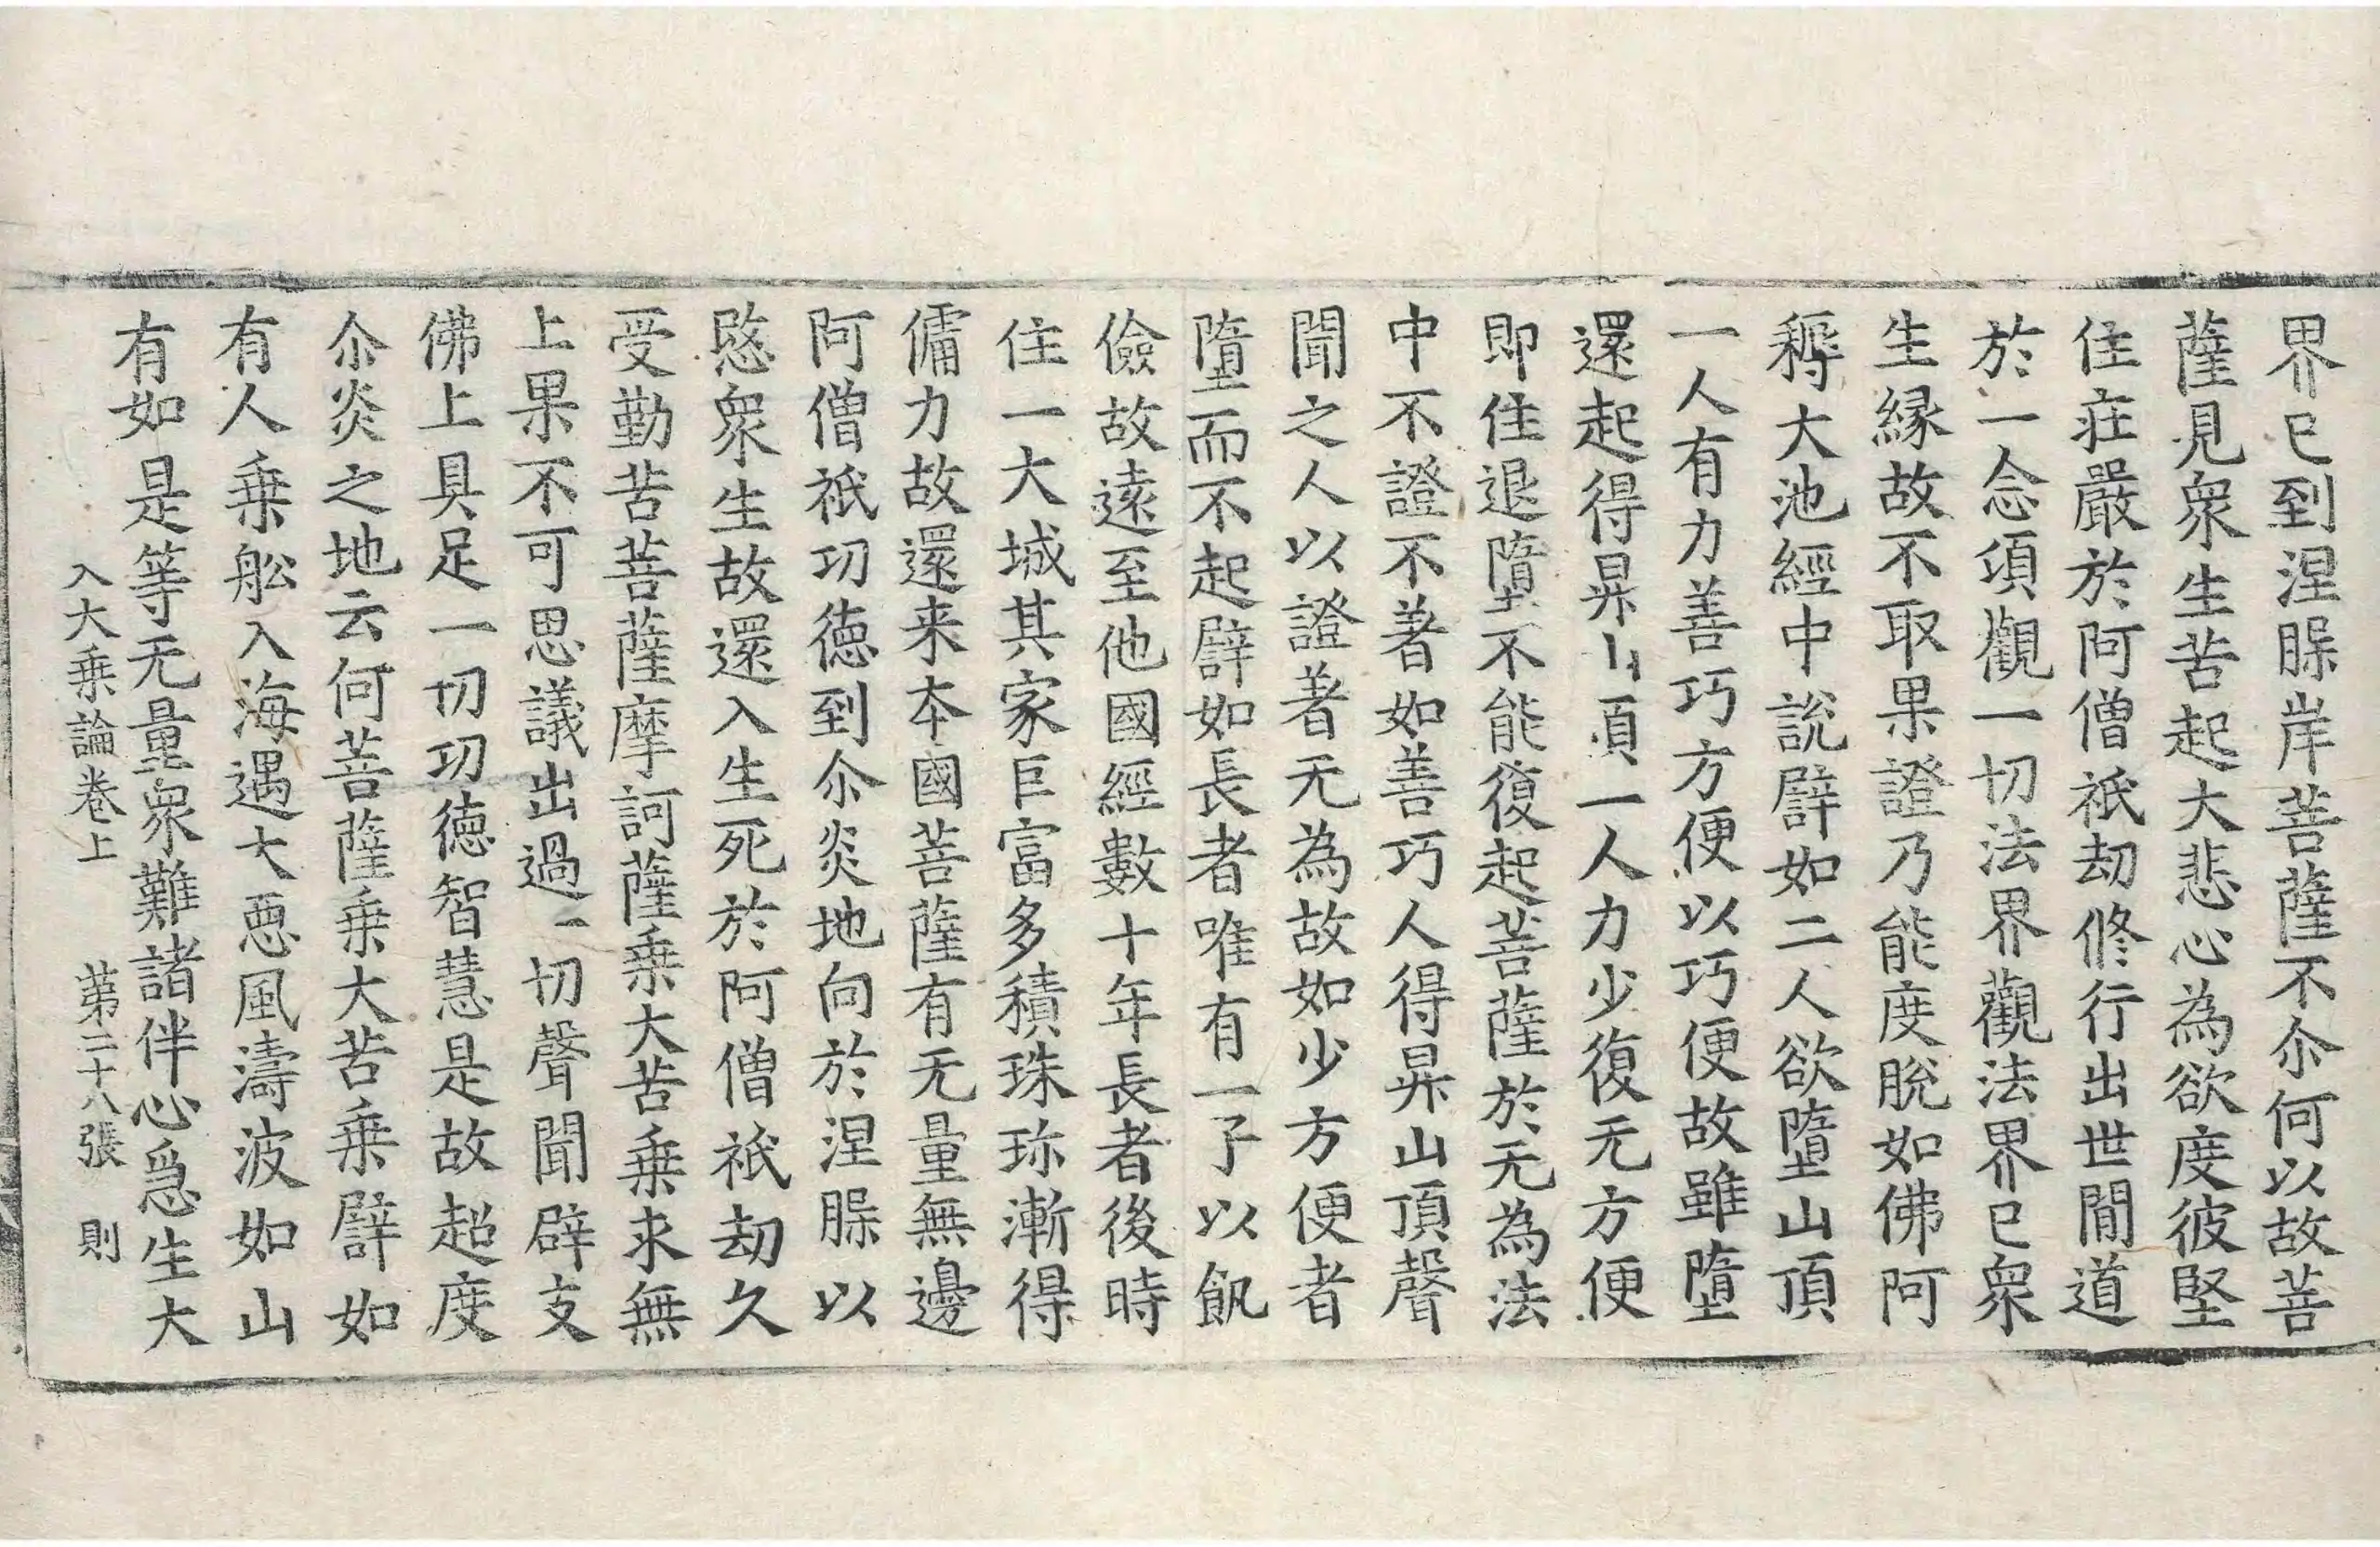 界已到涅槃岸菩薩不尒何以故菩
薩見衆生苦起大悲心為欲度彼堅
住莊嚴於阿僧祇劫修行出世閒道
於一念頃觀一切法界觀法界已衆
生縁故不取果證乃能度脫如佛阿
耨大池經中說譬如二人欲墮山頂
一人有力善巧方便以巧便故雖墮
還起得昇山頂一人力少復无方便
即住退墮不能復起菩薩於无為法
中不證不著如善巧人得昇山頂聲
聞之人以證著无為故如少方便者
墮而不起譬如長者唯有一子以飢
儉故遠至他國經數十年長者後時
住一大城其家巨富多積珠珎漸得
傭力故還来本國菩薩有无量無邊
阿僧祇功徳到尒炎地向於涅槃以
愍衆生故還入生死於阿僧祇劫久
受勤苦菩薩摩訶薩乗大苦乗求無
上果不可思議出過一切聲聞辟支
佛上具足一切功徳智慧是故超度
尒炎之地云何菩薩乗大苦乗譬如
有人乗舩入海遇大惡風濤波如山
有如是等无量衆難諸伴心爲生大
入大乗論卷上 苐二十八張 則